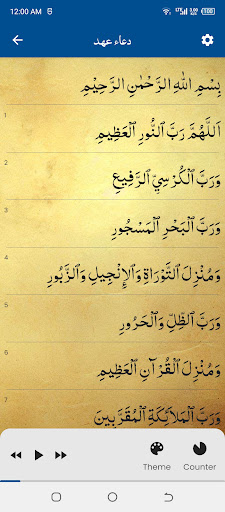 12:00 AM
100
دعاء عهد
بِسْمِ اللهِ الرَّحْمٰنِ الرَّحِيْمِ
اَللّٰهُمَّ رَبَّ النُّورِ الْعَظِيْمِ
1
وَرَبَّ الْكُرْسِيِّ الرَّفِيعِ
2
وَرَبَّ الْبَحْرِ الْمَسْجُورِ
3
وَمُنْزِلَ التَّوْرَاةِ وَالْإِنْجِيلِ وَالزَّبُورِ
4
وَرَبَّ الظِّلِّ وَالْحَرُورِ
5
وَمُنْزِلَ الْقُرْآنِ الْعَظِيْمِ
6
وَرَبَّ الْمَلَائِكَةِ الْمُقَرَّبِينَ
7
Theme Counter